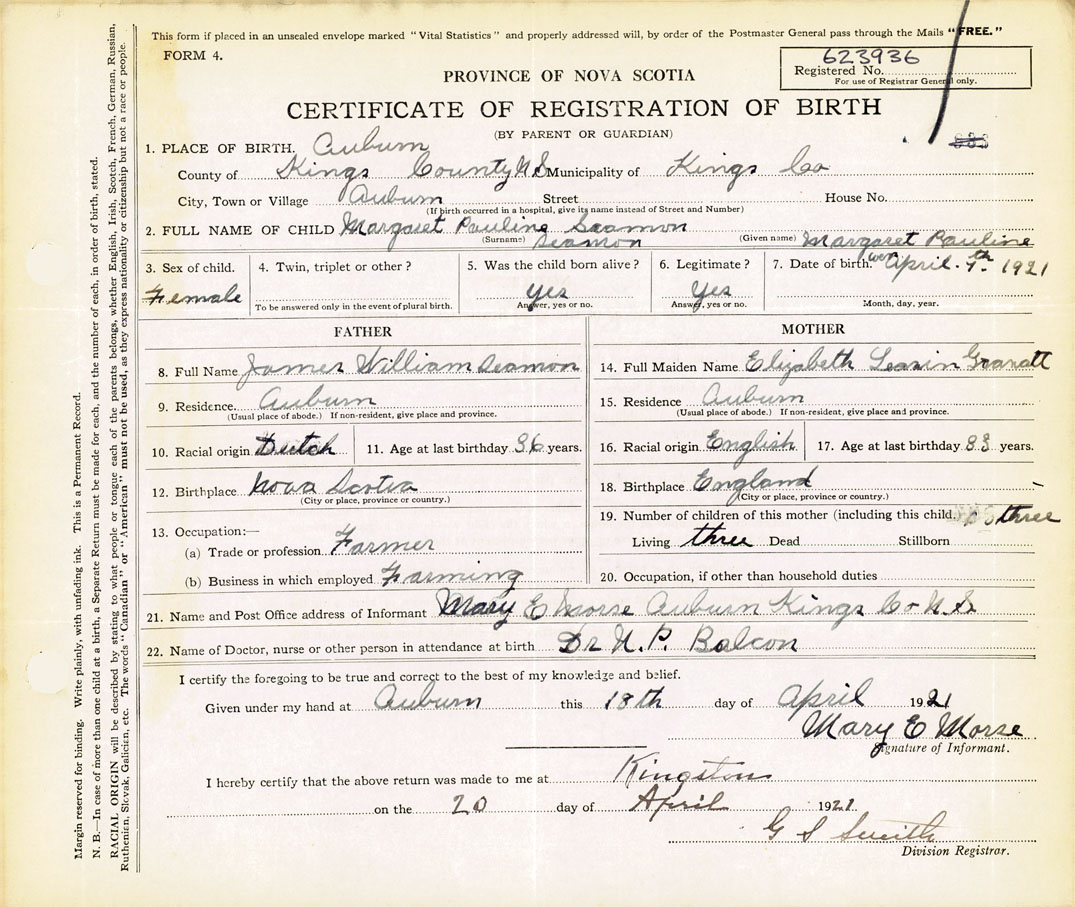 This form if placed in an unsealed envelope marked "Vital Statistics" and properly addressed will, by order of the Postmaster General pass through the Mails "FREE."
FORM 4.
623936
Registered No.
For use of Registrar General only.
PROVINCE OF NOVA SCOTIA
CERTIFICATE OF REGISTRATION OF BIRTH
(BY PARENT OR GUARDIAN)
1. PLACE OF BIRTH. Auburn
County of Kings County N.S. Municipality of Kings Co
City, Town or Village Auburn Street House No.
(If birth occurred in a hospital, give its name instead of Street and Number)
2. FULL NAME OF CHILD Margaret Pauline Seamon
(Surname) Seamon (Given name) Margaret Pauline
3. Sex of child. Female
4. Twin, triplet or other?
To be answered only in the event of plural birth.
5. Was the child born alive? Yes
Answer, yes or no.
6. Legitimate? Yes
Answer, yes or no.
7. Date of birth. April 1921
Month, day, year.
FATHER
8. Full Name James William Seamon
9. Residence. Auburn
(Usual place of abode.) If non-resident, give place and province.
10. Racial origin Dutch 11. Age at last birthday 36 years.
12. Birthplace Nova Scotia
(City or place, province or country.)
13. Occupation:—
(a) Trade or profession Farmer
(b) Business in which employed Farming
MOTHER
14. Full Maiden Name Elizabeth
15. Residence Auburn
(Usual place of abode.) If non-resident, give place and province.
16. Racial origin English 17. Age at last birthday years.
18. Birthplace England
(City or place, province or country.)
19. Number of children of this mother (including this child three
Living three Dead Stillborn
20. Occupation, if other than household duties
21. Name and Post Office address of Informant Mary E Morse Auburn Kings Co N.S.
22. Name of Doctor, nurse or other person in attendance at birth Dr N. P. Balcon
I certify the foregoing to be true and correct to the best of my knowledge and belief.
Given under my hand at Auburn this 18th day of April 1921
Mary E Morse
Signature of Informant.
I hereby certify that the above return was made to me at Kingston
on the 20 day of April 1921
G S Smith
Division Registrar.
Margin reserved for binding. Write plainly, with unfading ink. This is a Permanent Record.
N. B.—In case of more than one child at a birth, a Separate Return must be made for each, and the number of each, in order of birth, stated.
RACIAL ORIGIN will be described by stating to what people or tongue each of the parents belongs, whether English, Irish, Scotch, French, German, Russian,
Ruthenian, Slovak, Galician, etc. The words "Canadian" or "American" must not be used, as they express nationality or citizenship but not a race or people.